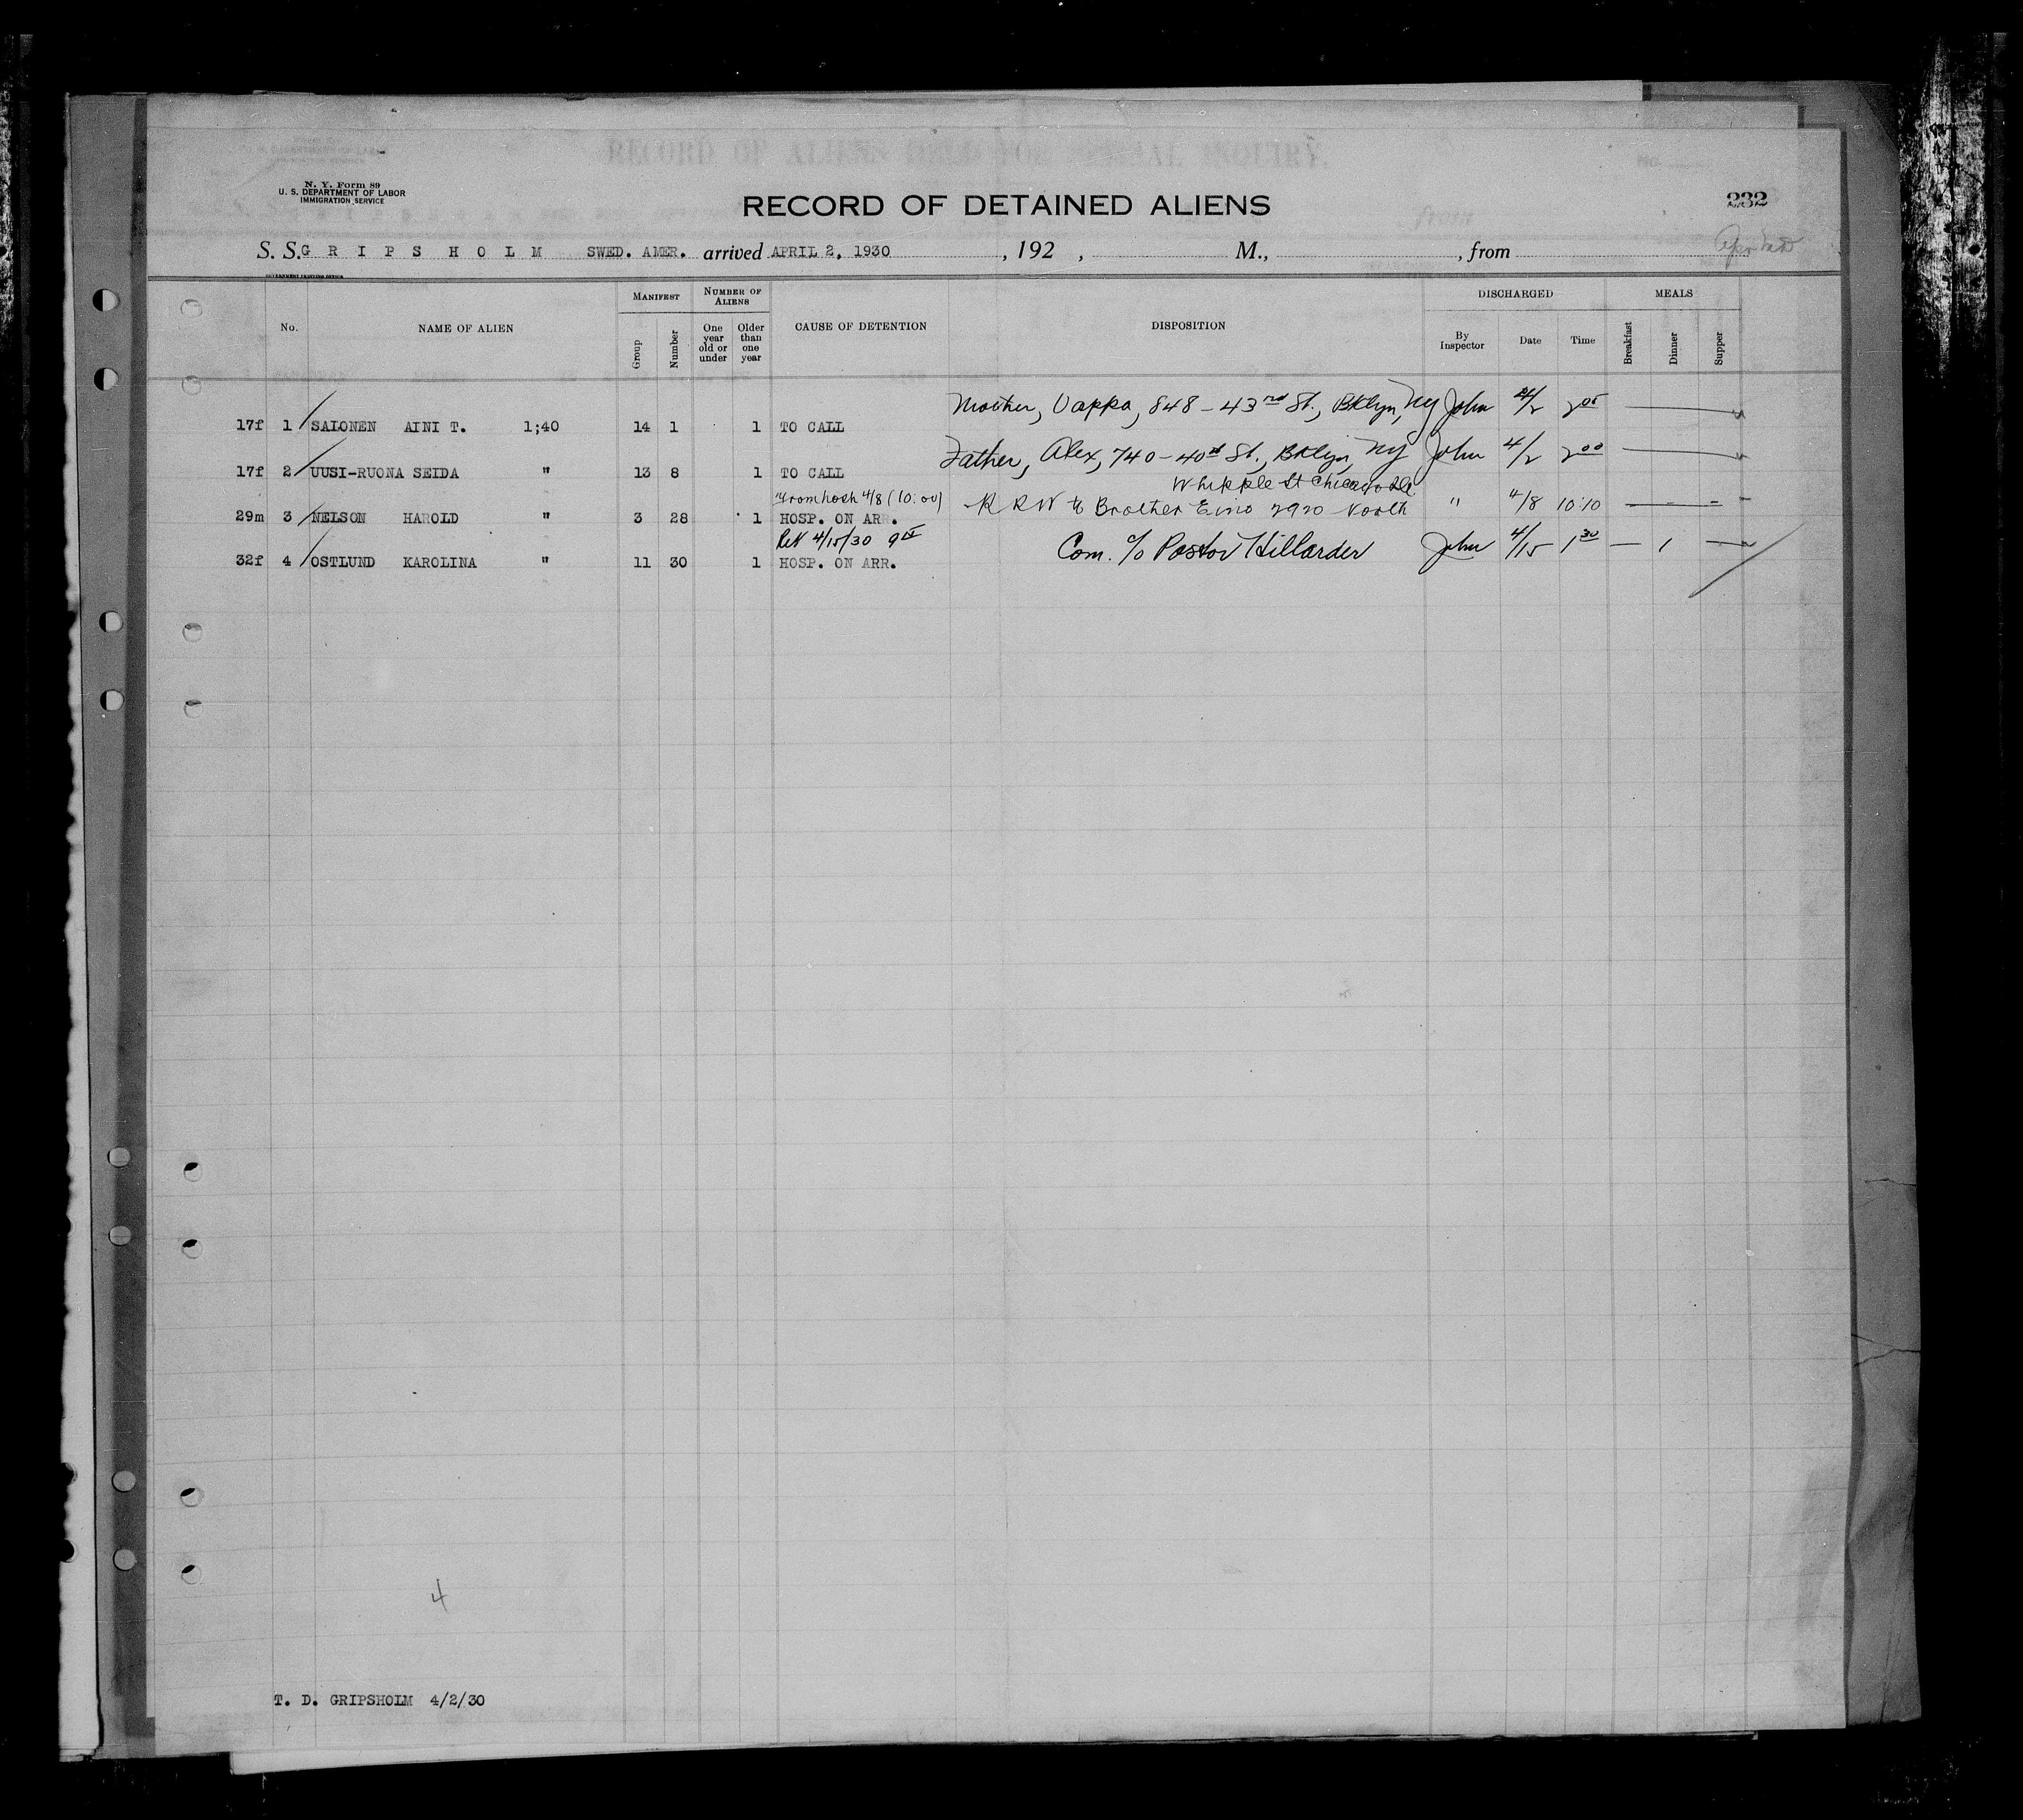 N. Y. Form 89
U. S. DEPARTMENT OF LABOR
IMMIGRATION SERVICE
RECORD OF ALIENS HELD FOR SPECIAL INQUIRY.
RECORD OF DETAINED ALIENS
232
S. S. G R I P S H O L M SWED. AMER. arrived APRIL 2, 1930 , 192 , M., , from
GOVERNMENT PRINTING OFFICE
No. NAME OF ALIEN MANIFEST NUMBER OF ALIENS CAUSE OF DETENTION DISPOSITION DISCHARGED MEALS
Group Number One year old or under Older than one year By Inspector Date Time Breakfast Dinner Supper
Mother, Vappa, 848-43rd St., Bklyn, NY John 4/2 2 05
17f 1 SALONEN AINI T. 1;40 14 1 1 TO CALL
Father, Alex, 740-40th St., Bklyn, NY John 4/2 2 00
17f 2 UUSI-RUONA SEIDA " 13 8 1 TO CALL
From hosh 4/8 (10:00) Whipple St Chicago Ill.
29m 3 NELSON HAROLD " 3 28 1 HOSP. ON ARR. R R W to Brother Eino 2920 North " 4/8 10:10
4/15/30 Com. c/o Pastor Hillarder John 4/15 1 30 — 1 —
32f 4 OSTLUND KAROLINA " 11 30 1 HOSP. ON ARR.
4
T. D. GRIPSHOLM 4/2/30